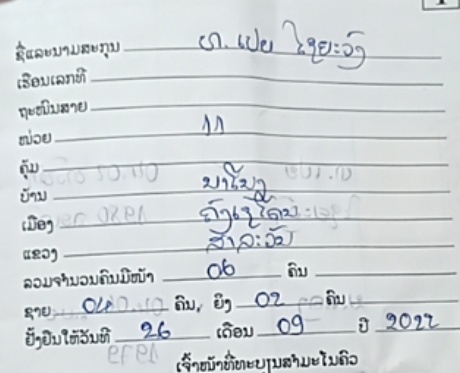 ຊື່ແລະນາມສະກຸນ ທ. ເປຍ ໄຊຍະວົງ
ເຮືອນເລກທີ
ຖະໜົນສາຍ
ໜ່ວຍ 11
ຄຸ້ມ
ບ້ານ ນາໂບງ
ເມືອງ ຄົງເຊໂດນ
ແຂວງ ສາລະວັນ
ລວມຈຳນວນຄົນມີໜ້າ 06 ຄົນ
ຊາຍ 04 ຄົນ, ຍິງ 02 ຄົນ
ຢັ້ງຢືນໃຫ້ວັນທີ 26 ເດືອນ 09 ປີ 2022
ເຈົ້າໜ້າທີ່ທະບຽນສຳມະໂນຄົວ